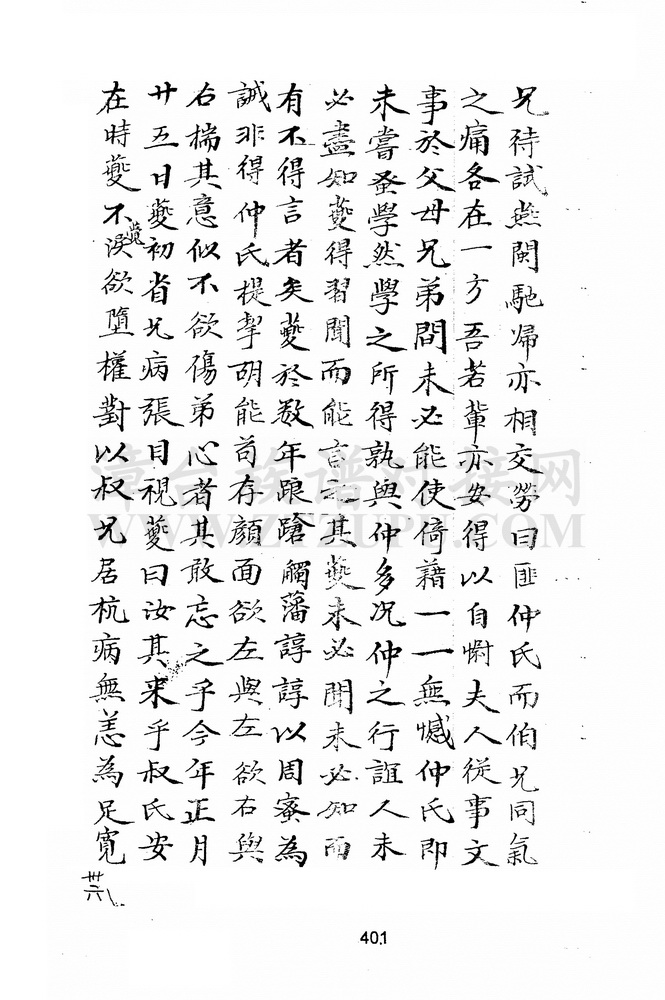 兄待試燕閩馳歸亦相交勞曰匪仲氏而伯兄同氣
之痛各在一方吾若輩亦安得以自慰夫人從事文
事於父母兄弟間未必能使倚藉一一無憾仲氏即
未嘗蚤學然學之所得孰與仲多况仲之行誼人未
必盡知夔得習聞而能言之其夔未必聞未必知而
有不得言者矣夔於数年踉蹌觸藩諄諄以周密為
誠非得仲氏提挈胡能苟存顏面欲左與左欲右與
右揣其意似不欲傷弟心者其敢忘之乎今年正月
廿五日夔初省兄病張目視夔曰汝其来乎叔氏安
在時夔不覚淚欲墮權對以叔兄居杭病無恙為足寬
卅六
401
漳台族谱对接网
WWW.ZTZUPU.COM